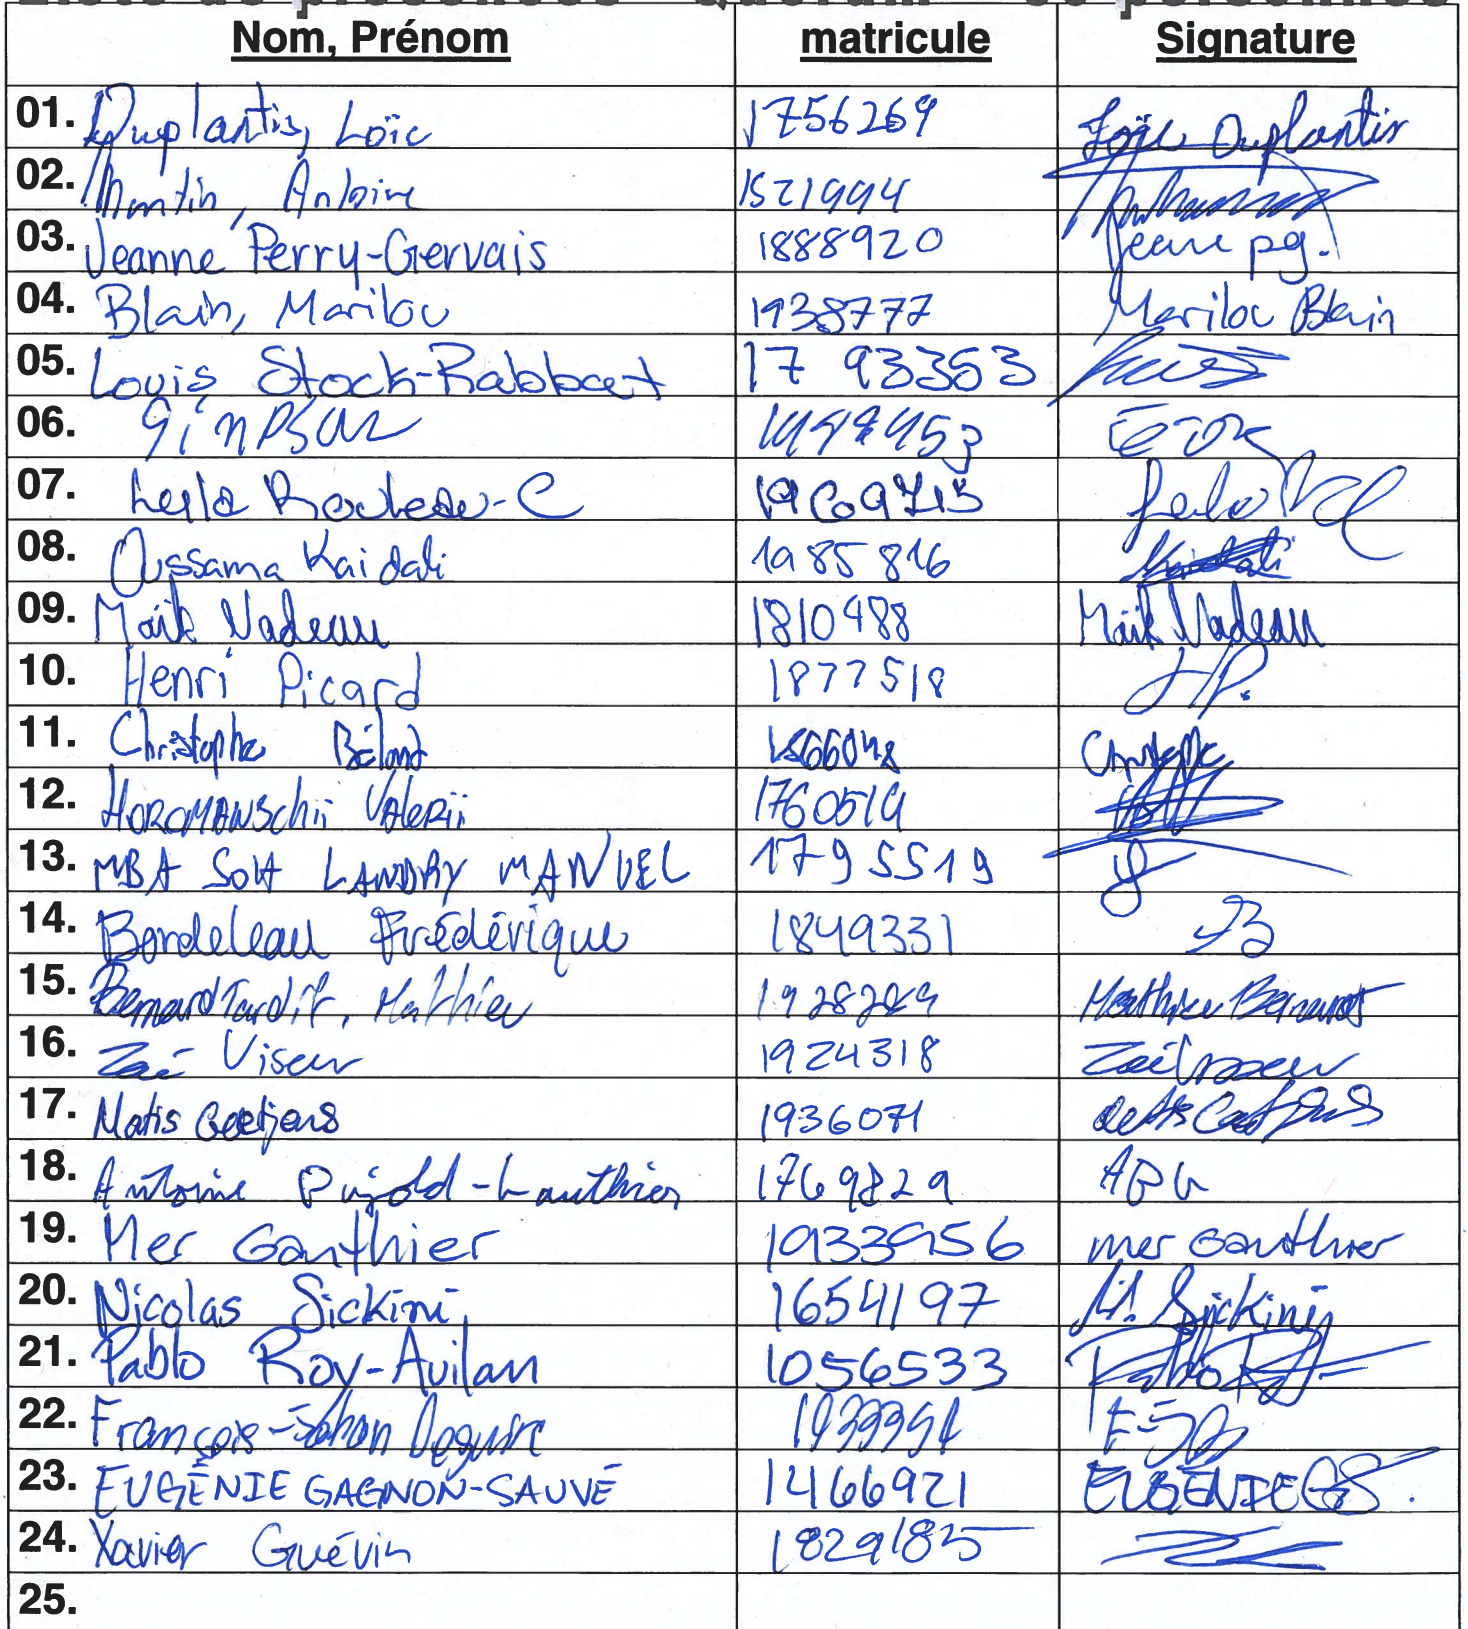 Nom, Prénom matricule Signature
01. Duplantis, Loïc 1756269 Loïc Duplantis
02. Antoine 1521994
03. Jeanne Perry-Gervais 1888920 Jeanne pg.
04. Blain, Marilou 1938777 Marilou Blain
05. Louis Stock-Rabbat 17 93353
06.
07. Leila Rouleau-C
08. Oussama Kaidali 1985816 Kaidali
09. Maïk Nadeau 1810488 Maïk Nadeau
10. Henri Picard 1877518 HP.
11. Christophe Béland Christophe
12. HOROMANSchii VAleRii 1760519
13. MBA SOH LANDRY MANUEL 1795519
14. Bordeleau Frédérique 1849331 FB
15. Bernard Tardif, Mathieu Mathieu Bernard
16. Zoé Viseur 1924318 Zoé Viseur
17. Matis 1936071
18. Antoine Pujold-Gauthier 1769829 APG
19. Mer Gauthier 1933956 mer Gauthier
20. Nicolas Sickini 1654197 N. Sickini
21. Pablo Roy-Avilan 1056533 Pablo
22. François-Johan Deguire F-JD
23. EUGÉNIE GAGNON-SAUVÉ 1466921 EUGÉNIE GS.
24. Xavier Guévin 1829185
25.